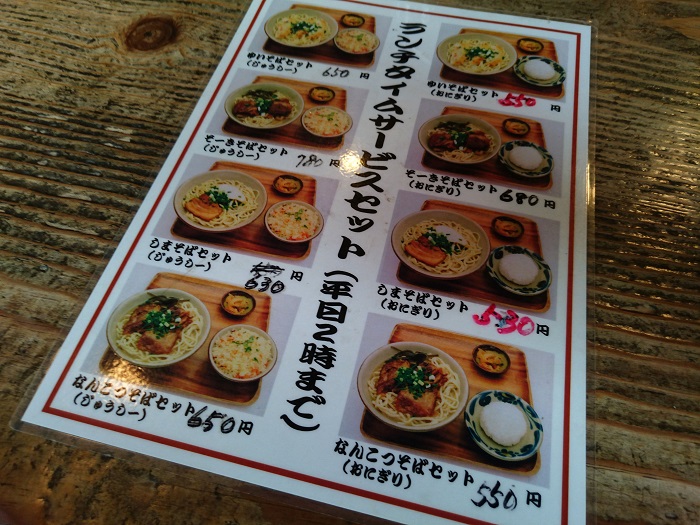 ランチタイムサービスセット(平日2時まで)
ゆいそばセット
(じゅうしー)
650円
ゆいそばセット
(おにぎり)
550円
そーきそばセット
(じゅうしー)
780円
そーきそばセット
(おにぎり)
680円
しまそばセット
(じゅうしー)
630円
しまそばセット
(おにぎり)
530円
なんこつそばセット
(じゅうしー)
650円
なんこつそばセット
(おにぎり)
550円